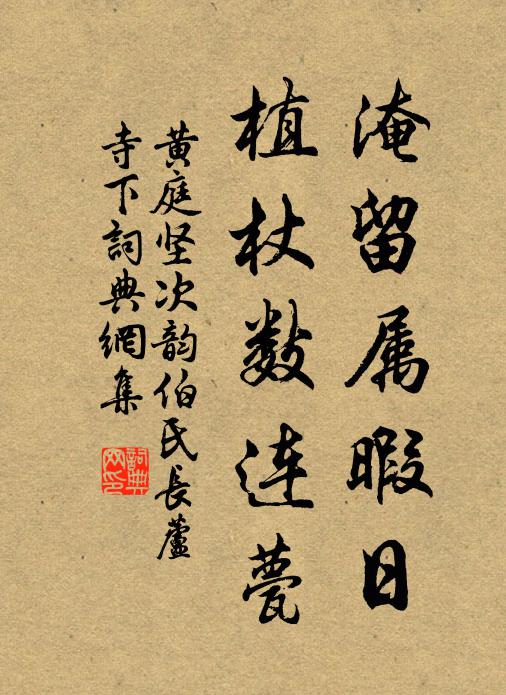 淹留属暇日
植杖数连甍
黄庭坚次韵伯氏長蘆
寺下詞典網集
詞典网印